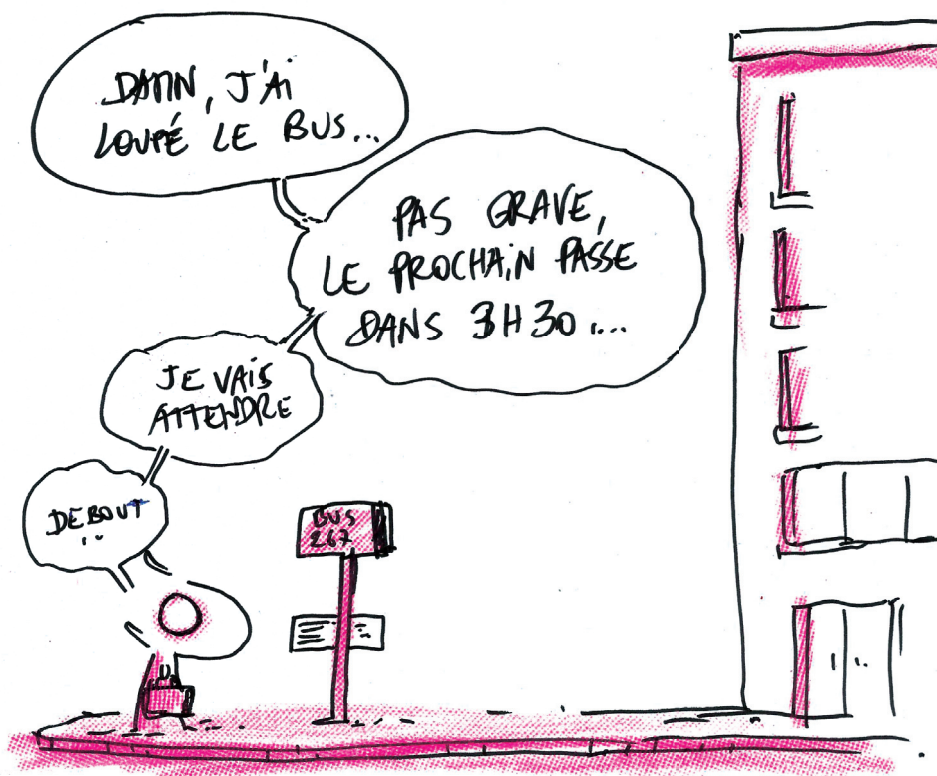 DAMN, J'AI
LOUPÉ LE BUS...
PAS GRAVE,
LE PROCHAIN PASSE
DANS 3H30...
JE VAIS
ATTENDRE
DEBOUT
BUS
267